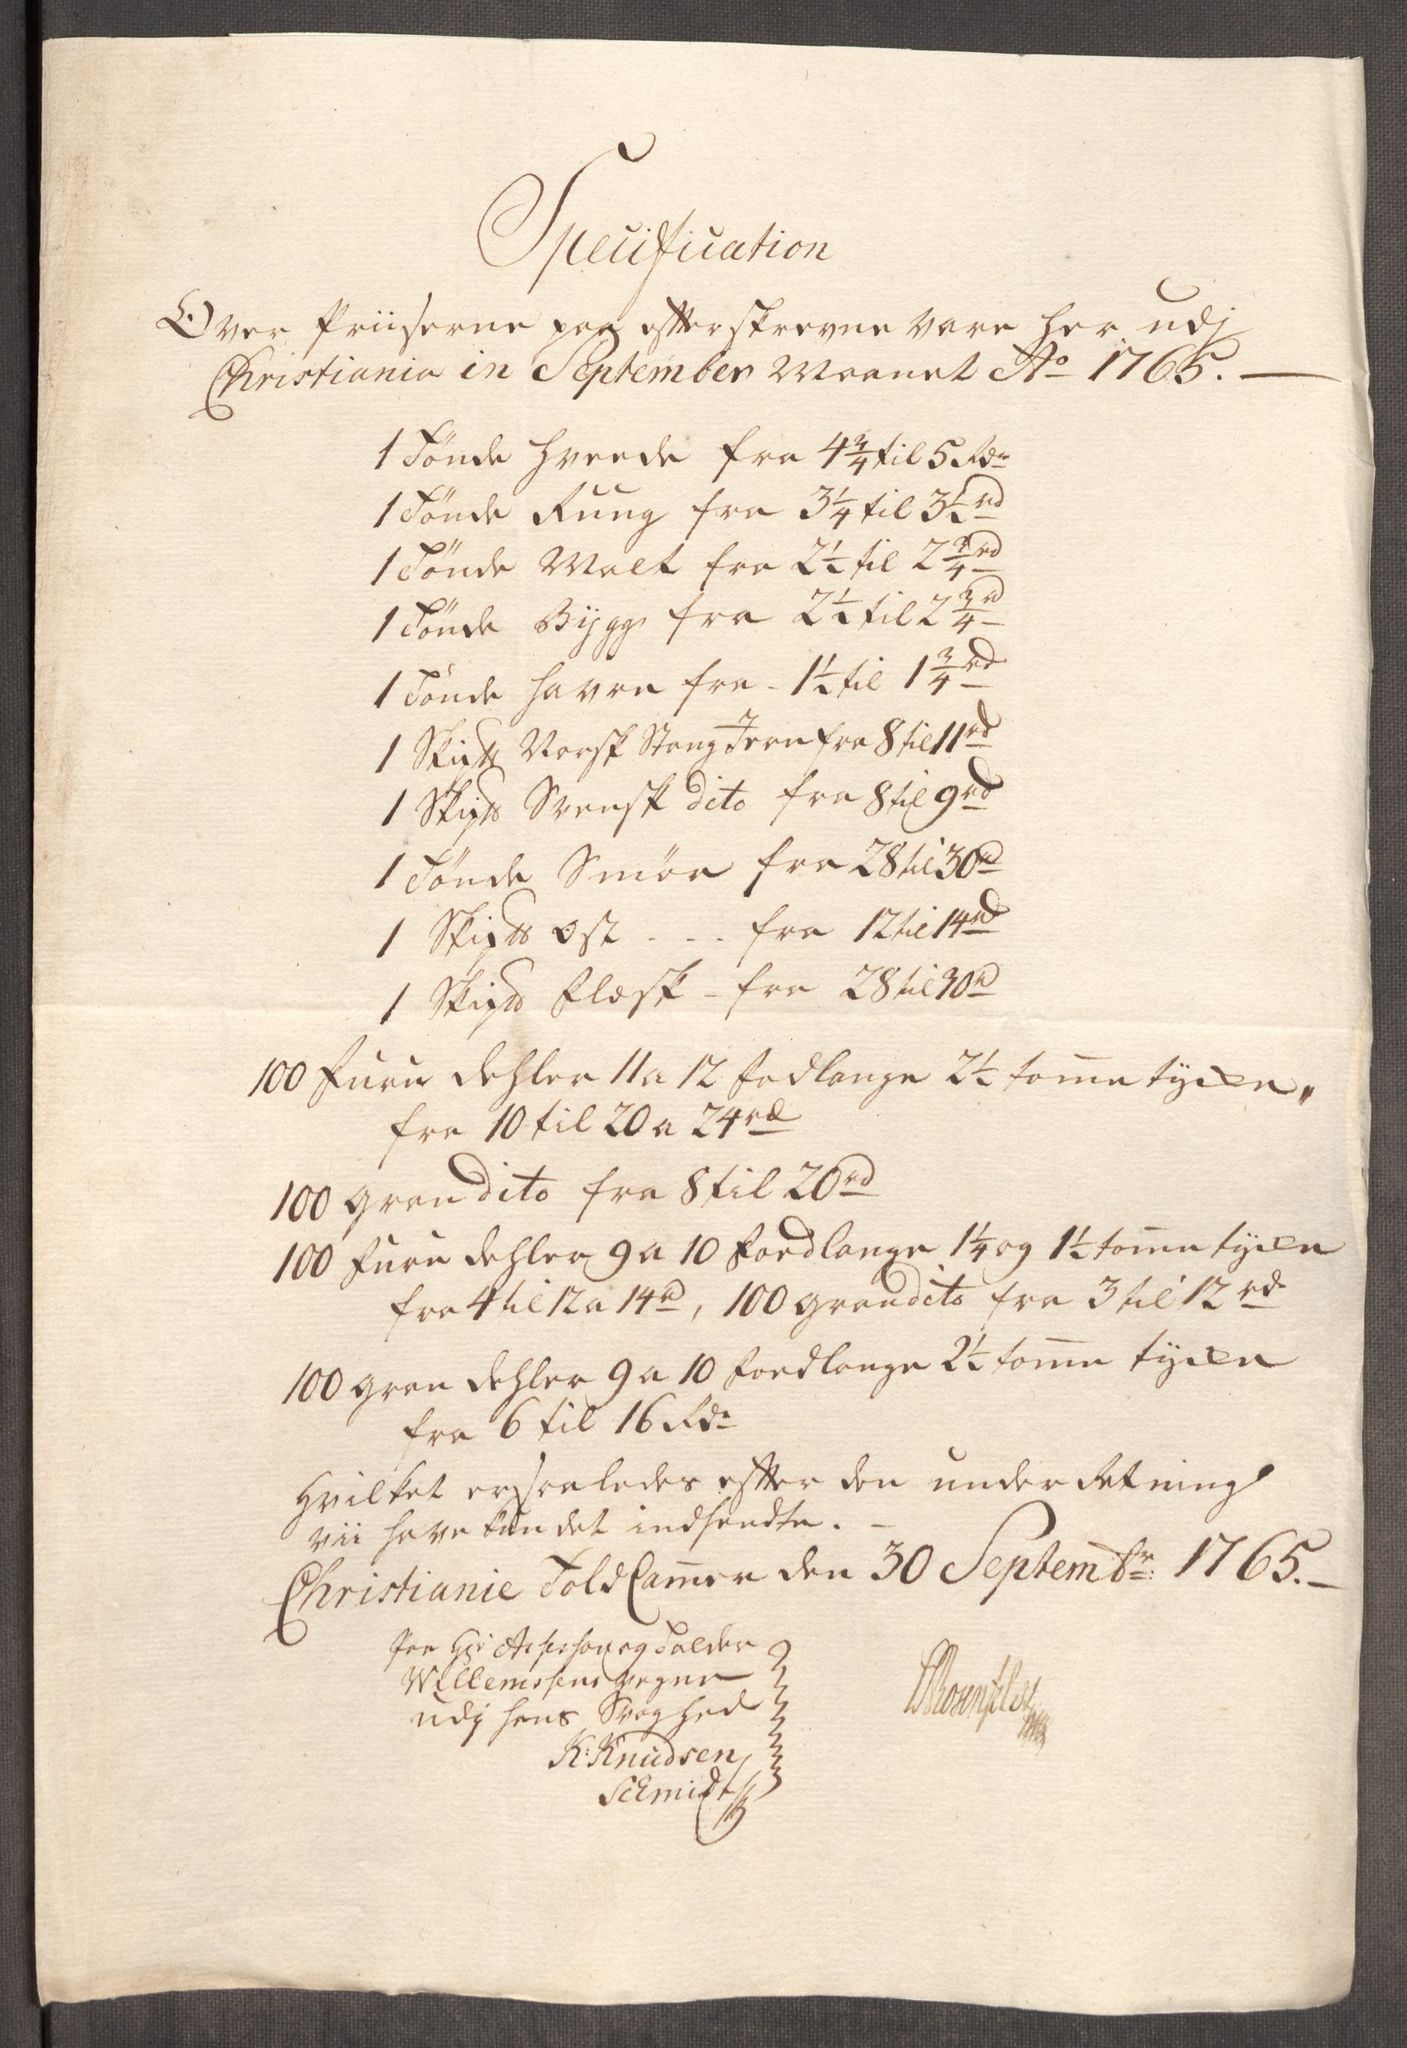 Specification
Over Priiserne paa efterskrevne vare her udj
Christiania in September Maanet Ao 1765. —
1 Tönde Hveede fra 4 3/4 til 5 Rdr
1 Tönde Rung fra 3 1/4 til 3 1/2 rd
1 Tönde Malt fra 2 1/2 til 2 3/4 rd
1 Tönde Bijgg fra 2 1/2 til 2 3/4 rd
1 Tönde Havre fra - 1 1/2 til 1 3/4 rd
1 Skipd Norsk Stang Jern fra 8 til 11 rd
1 Skipd Svensk dito fra 8 til 9 rd
1 Tönde Smør fra 28 til 30 rd
1 Skipd Ost - - - fra 12 til 14 rd
1 Skipd Flesk - fra 28 til 30 rd
100 Furu dehler 11 a 12 fodlange 2 1/2 tom̅e tycken,,
fra 10 til 20 a 24 rd
100 gran dito fra 8 til 20 rd
100 Furu dehler 9 a 10 foedlange 1 1/4 og 1 1/2 tom̅e tycken
fra 4 til 12 a 14 rd, 100 gran dito fra 3 til 12 rd
100 gran dehler 9 a 10 foedlange 2 1/2 tom̅e tycken
fra 6 til 16 Rdr
Hvilket er saaledes efter den underRetning
vii have kundet indhendte. —
Christianie Told Cam̅er den 30 Septembr: 1765. —
paa Hr Assessor og Tolder
Willemssens vegne
udj hans Svaghed
K: Knudsen
Schmidt